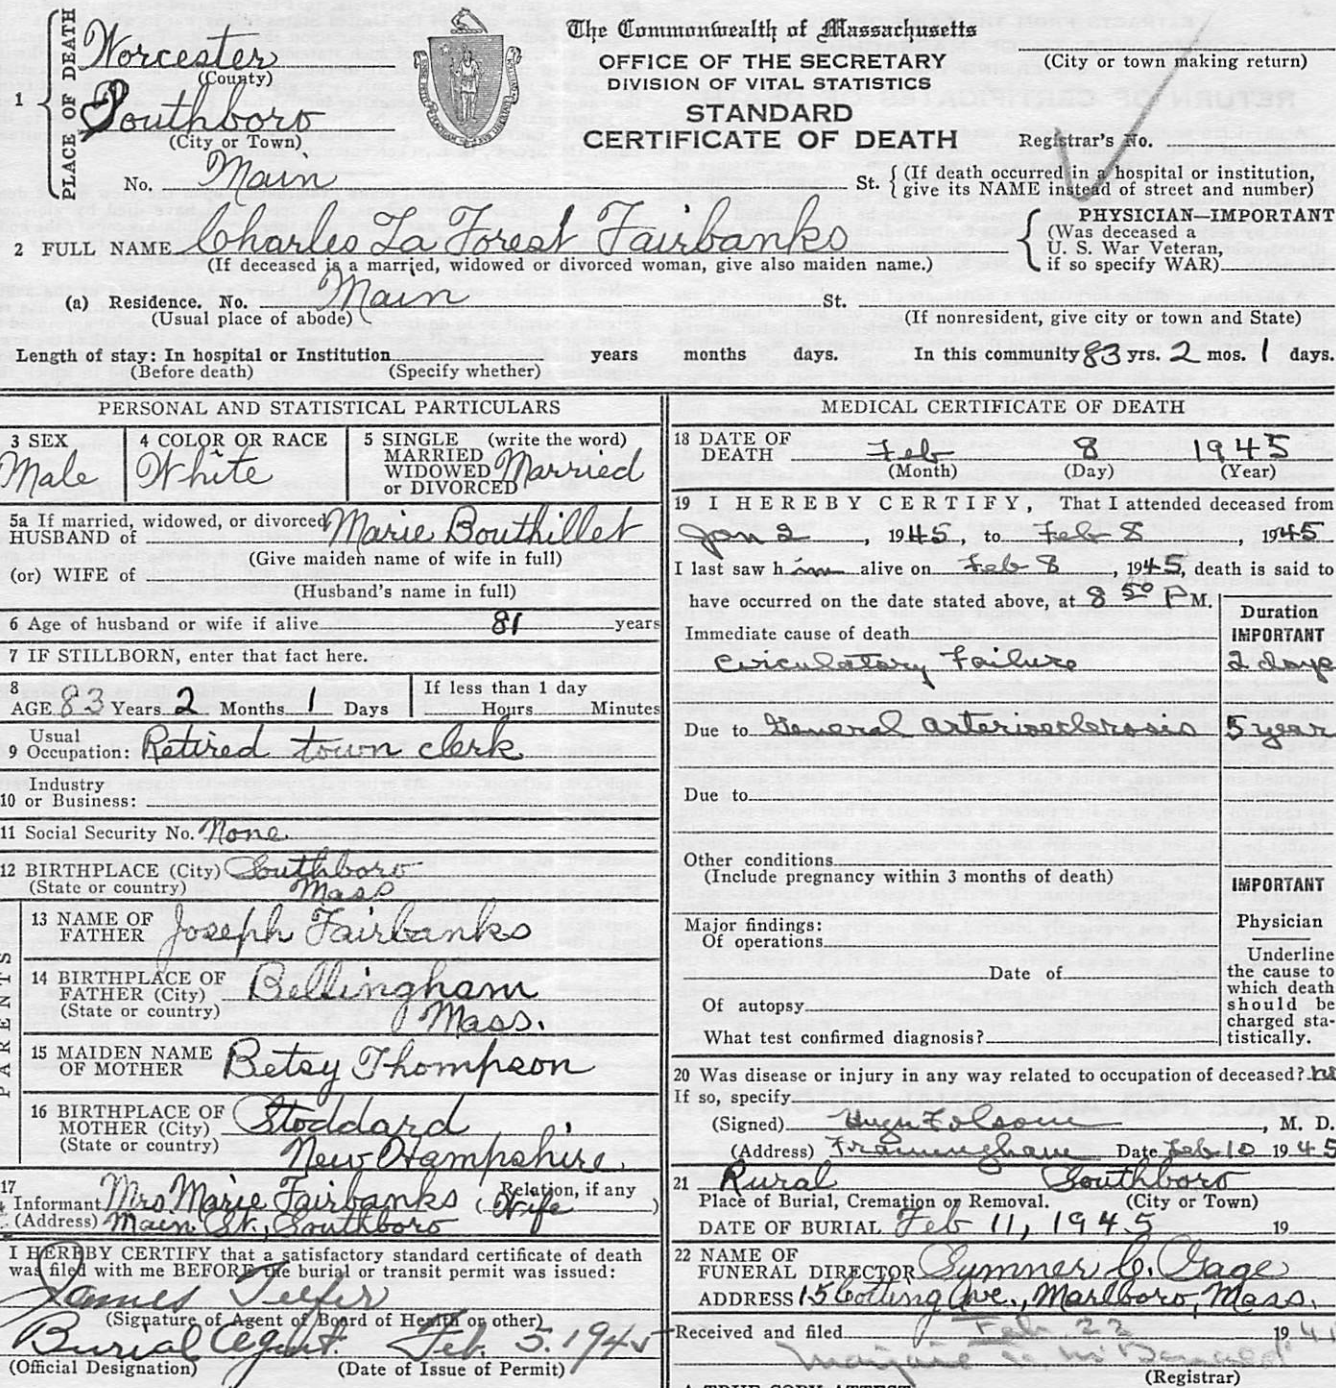 The Commonwealth of Massachusetts
OFFICE OF THE SECRETARY
DIVISION OF VITAL STATISTICS
STANDARD
CERTIFICATE OF DEATH
1 PLACE OF DEATH
Worcester
(County)
Southboro
(City or Town)
No. Main St. { (If death occurred in a hospital or institution, give its NAME instead of street and number)
(City or town making return)
Registrar's No.
2 FULL NAME Charles La Forest Fairbanks
(If deceased is a married, widowed or divorced woman, give also maiden name.)
PHYSICIAN—IMPORTANT
(Was deceased a
U. S. War Veteran,
if so specify WAR)
(a) Residence. No. Main St.
(Usual place of abode)
(If nonresident, give city or town and State)
Length of stay: In hospital or Institution years months days. In this community 83 yrs. 2 mos. 1 days.
(Before death) (Specify whether)
PERSONAL AND STATISTICAL PARTICULARS
3 SEX
Male
4 COLOR OR RACE
White
5 SINGLE (write the word)
MARRIED
WIDOWED Married
or DIVORCED
5a If married, widowed, or divorced
HUSBAND of Marie Bouthillet
(Give maiden name of wife in full)
(or) WIFE of
(Husband's name in full)
6 Age of husband or wife if alive 81 years
7 IF STILLBORN, enter that fact here.
8 AGE 83 Years 2 Months 1 Days
If less than 1 day
Hours Minutes
9 Usual Occupation: Retired town clerk
10 Industry or Business:
11 Social Security No. None
12 BIRTHPLACE (City) Southboro
(State or country) Mass
PARENTS
13 NAME OF FATHER Joseph Fairbanks
14 BIRTHPLACE OF
FATHER (City) Bellingham
(State or country) Mass.
15 MAIDEN NAME
OF MOTHER Betsy Thompson
16 BIRTHPLACE OF
MOTHER (City) Stoddard
(State or country) New Hampshire
17 Informant Mrs Marie Fairbanks (Relation, if any Wife)
(Address) Main St., Southboro
I HEREBY CERTIFY that a satisfactory standard certificate of death
was filed with me BEFORE the burial or transit permit was issued:
James Telfer
(Signature of Agent of Board of Health or other)
Burial Agent. Feb. 5. 1945
(Official Designation) (Date of Issue of Permit)
MEDICAL CERTIFICATE OF DEATH
18 DATE OF
DEATH Feb 8 1945
(Month) (Day) (Year)
19 I HEREBY CERTIFY, That I attended deceased from
Jan 2, 1945, to Feb 8, 1945
I last saw him alive on Feb 8, 1945, death is said to
have occurred on the date stated above, at 8 50 P M.
Duration
IMPORTANT
Immediate cause of death
Circulatory Failure 2 days
Due to General Arteriosclerosis 5 year
Due to
Other conditions
(Include pregnancy within 3 months of death)
IMPORTANT
Major findings:
Of operations
Date of
Of autopsy
What test confirmed diagnosis?
Physician
Underline
the cause to
which death
should be
charged sta-
tistically.
20 Was disease or injury in any way related to occupation of deceased? no
If so, specify
(Signed) Hugh Folsom, M. D.
(Address) Framingham Date Feb 10 1945
21 Rural Southboro
Place of Burial, Cremation or Removal. (City or Town)
DATE OF BURIAL Feb 11, 1945 19
22 NAME OF
FUNERAL DIRECTOR Sumner C. Gage
ADDRESS 15 Cotting Ave., Marlboro, Mass.
Received and filed Feb 23 19
(Registrar)
A TRUE COPY ATTEST